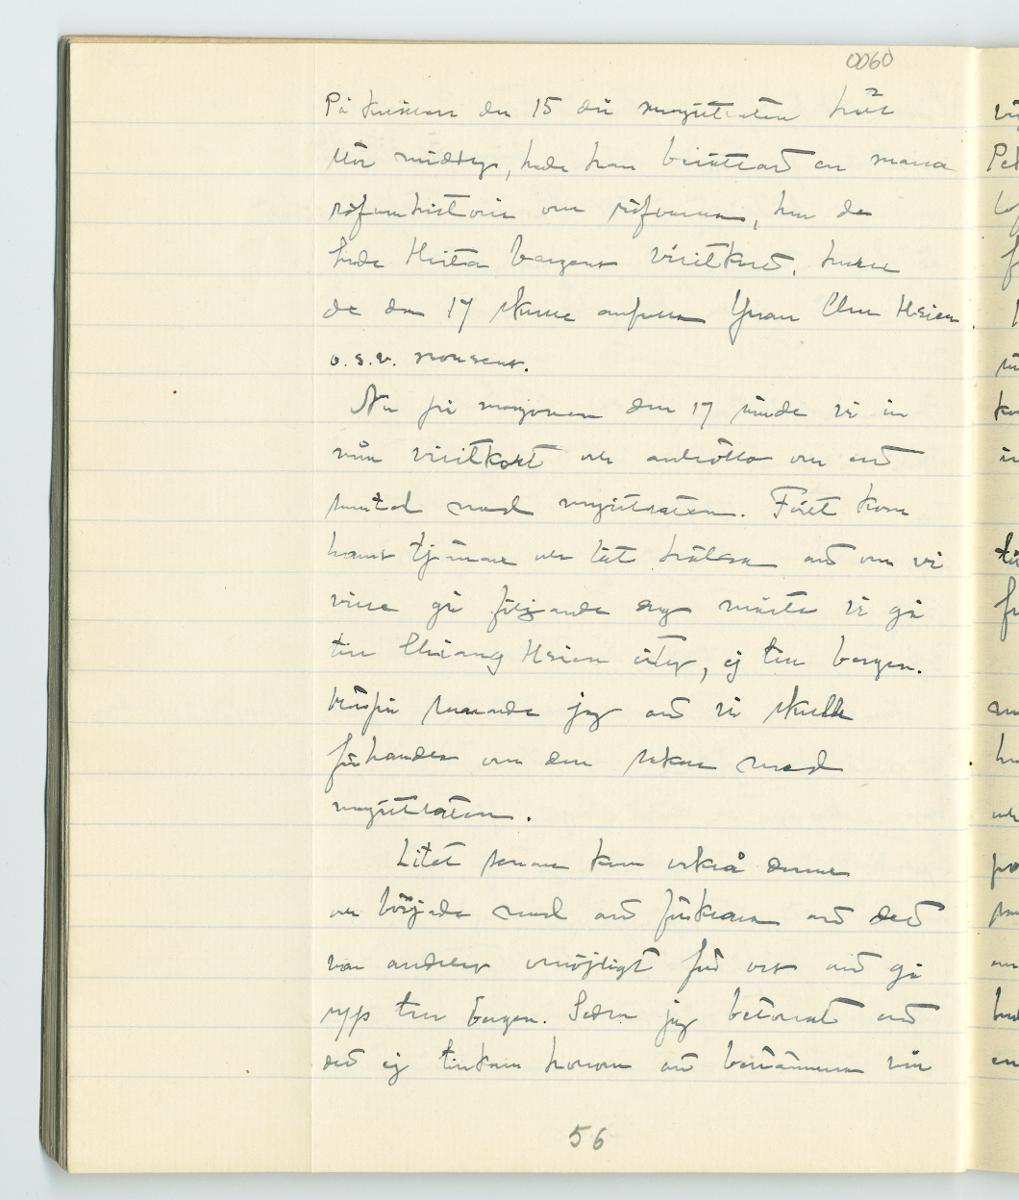 0060
På kvällen den 15 då magistraten här
åt middag, hade han berättat en massa
röfvarhistorier om röfvarna, hur de
hade Hvita bergens visitkort, hur
de den 17 skulle anfalla Yuan Chu Hsien
o.s.v. nonsens.
Nu på morgonen den 17 sände vi in
våra visitkort och anhöllo om ett
samtal med magistraten. Först kom
hans tjänare och lät hälsa att om vi
ville gå följande dag måste vi gå
till Chiang Hsien city, ej till bergen.
Härpå svarade jag att vi skulle
förhandla om den saken med
magistraten.
Litet senare kom också denne
och började med att förklara att det
var alldeles omöjligt för oss att gå
upp till bergen. Sedan jag betonat att
det ej tillkom honom att bestämma vår
56